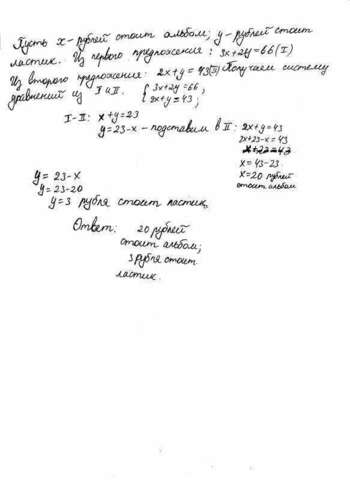 Пусть x - рублей стоит альбом; y - рублей стоит
ластик. Из первого предложения: 3x+2y=66 (I)
Из второго предложения: 2x+y=43(II) Получаем систему
уравнений из I и II. { 3x+2y=66,
2x+y=43;
I-II: x+y=23
y=23-x - подставим в II: 2x+y=43
2x+23-x=43
x=43-23
x=20 рублей
стоит альбом
y=23-x
y=23-20
y=3 рубля стоит ластик.
Ответ: 20 рублей
стоит альбом;
3 рубля стоит
ластик.